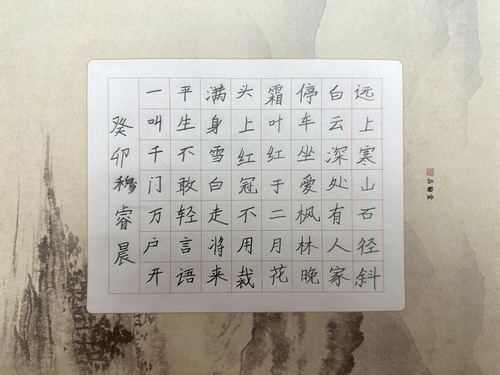 远上寒山石径斜
白云深处有人家
停车坐爱枫林晚
霜叶红于二月花
头上红冠不用裁
满身雪白走将来
平生不敢轻言语
一叫千门万户开
癸卯穆睿晨